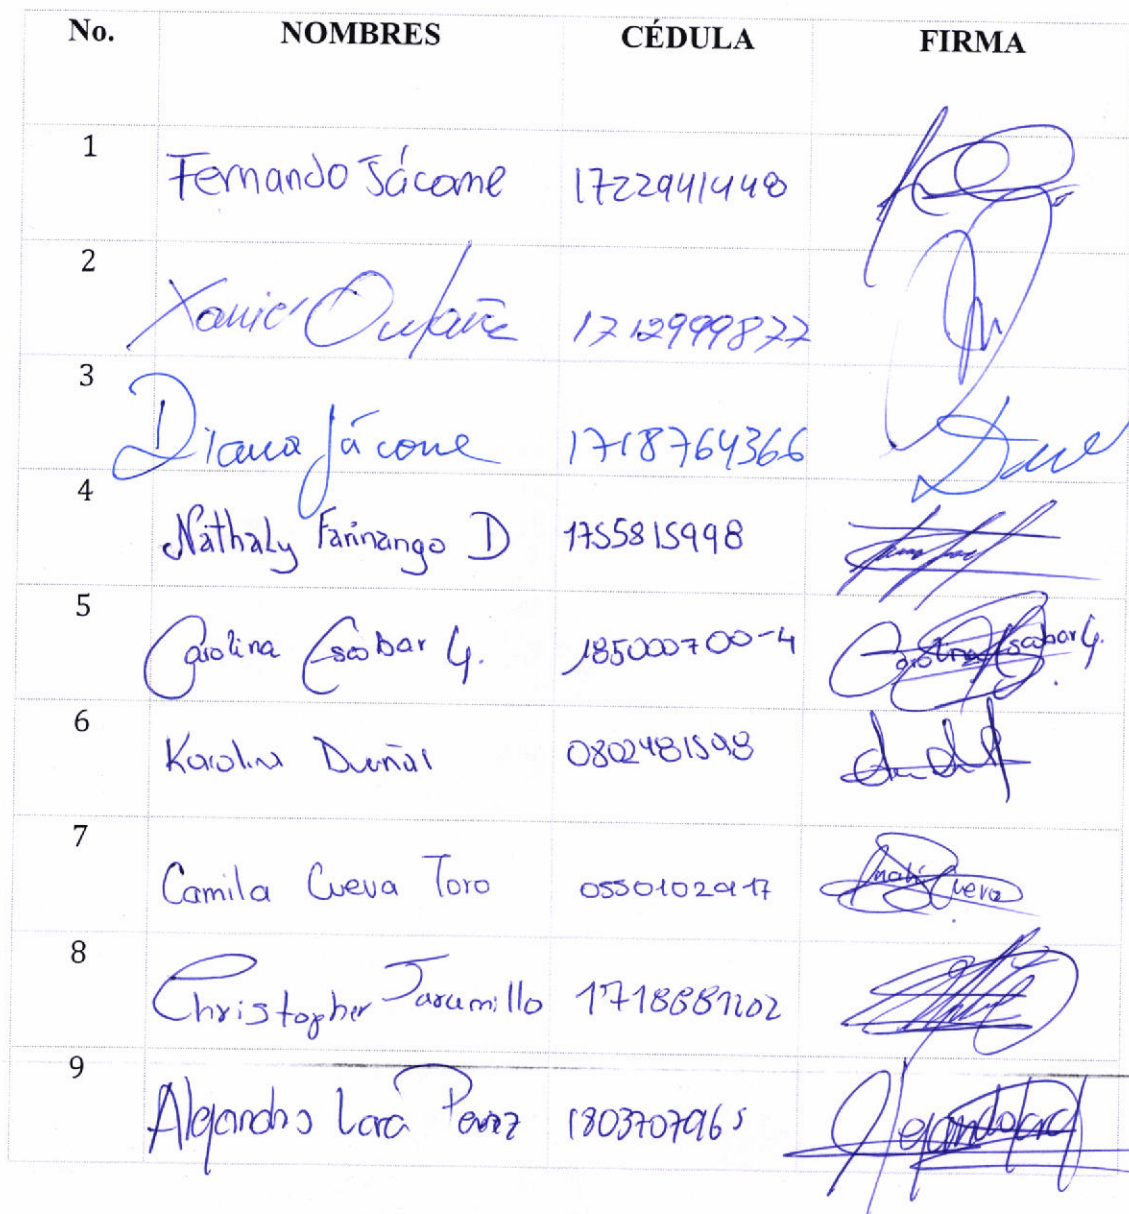 No. NOMBRES CÉDULA FIRMA
1 Fernando Jácome 1722941448
2 Xavier 1712999877
3 Diana Jácome 1718764366
4 Nathaly Farinango D 1755815998
5 Carolina Escobar G. 185000700-4 Carolina Escobar G.
6 0802481598
7 Camila Cueva Toro 0550102917 Cueva
8 Christopher Jaramillo
9 Alejandro Lara Perez 1803707965